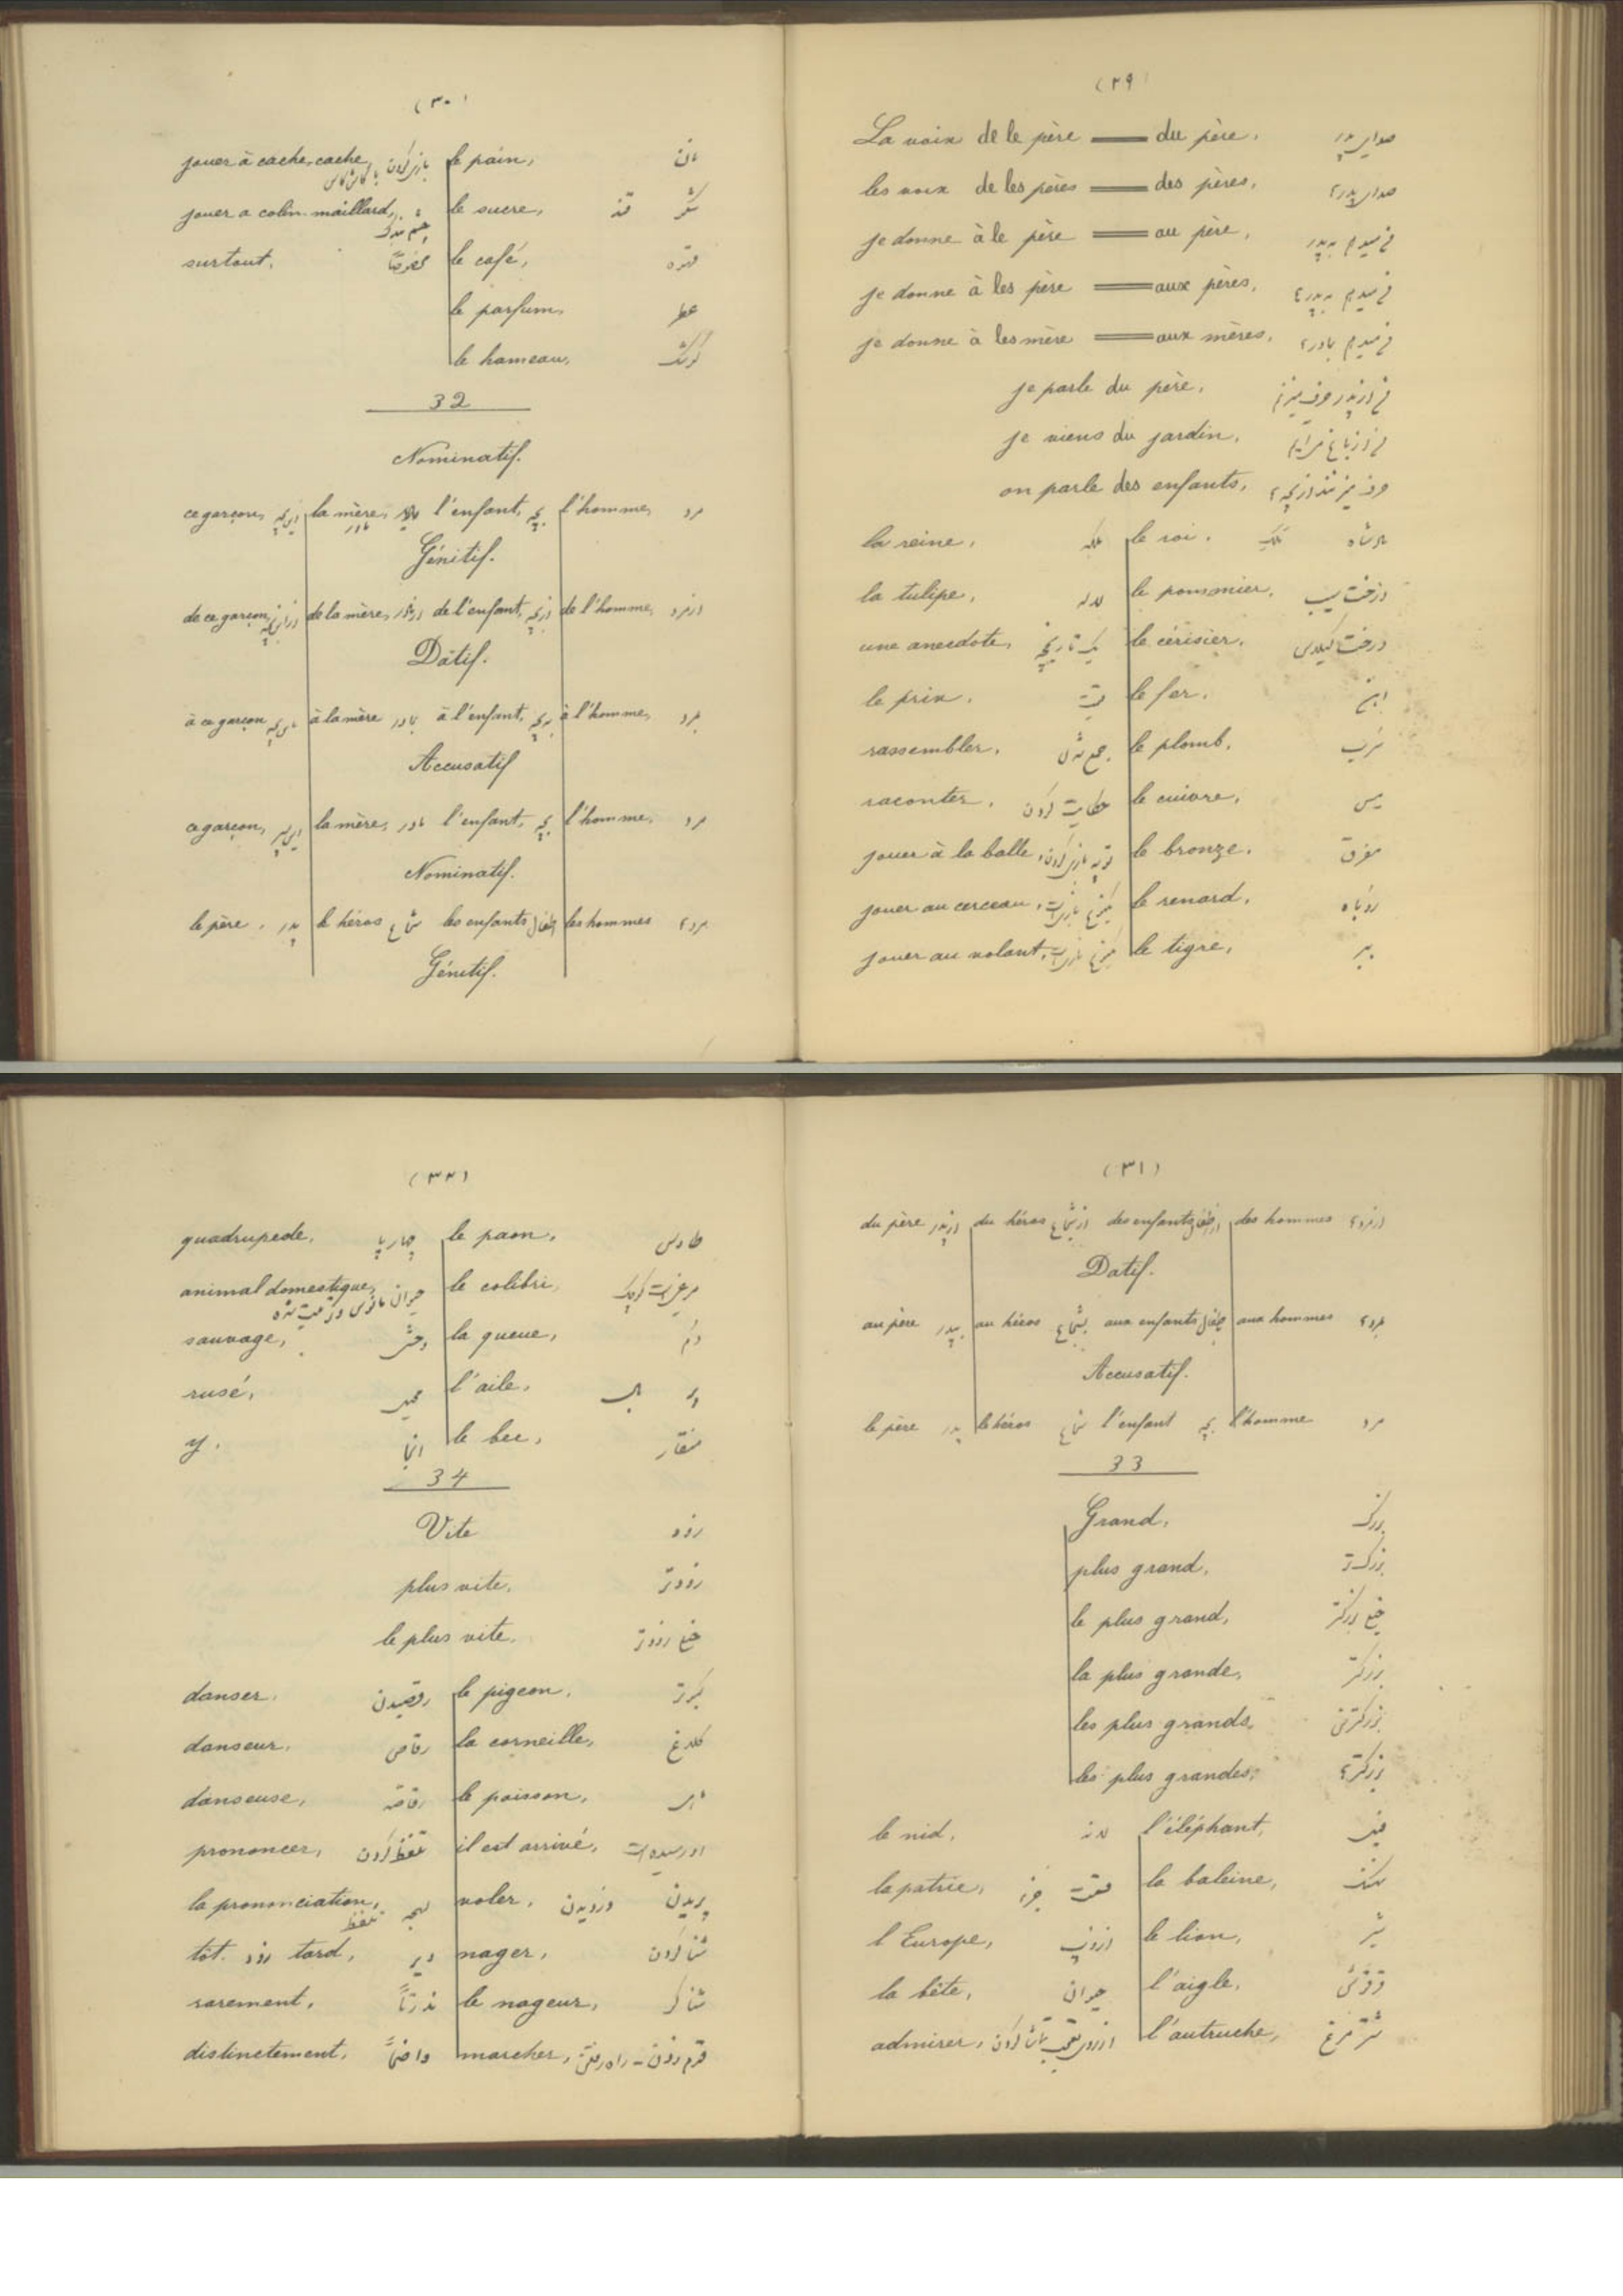 (٢٩)
La voix de le père — du père. صدای پدر
les voix de les pères — des pères.
je donne à le père — au père. من میدهم به پدر
je donne à les père — aux pères.
je donne à les mère — aux mères.
je parle du père. من از پدر حرف میزنم
je viens du jardin. من از باغ می‌آیم
on parle des enfants.
la reine. ملکه le roi. ملک پادشاه
la tulipe. لاله le pommier. درخت سیب
une anecdote. یک تاریخچه le cérisier. درخت گیلاس
le prix. le fer. آهن
rassembler. جمع شدن le plomb. سرب
raconter. حکایت کردن le cuivre. مس
jouer à la balle. توپ بازی کردن le bronze. مفرق
jouer au cerceau. le renard. روباه
jouer au volant. le tigre. ببر
(٣٠)
jouer à cache-cache. بازی کردن le pain. نان
jouer a colin-maillard. le sucre. قند شکر
surtout. مخصوصاً le café. قهوه
le parfum. عطر
le hameau.
32
Nominatif.
ce garçon, la mère, مادر l'enfant, بچه l'homme, مرد
Génitif.
de ce garçon, de la mère, از مادر de l'enfant, از بچه de l'homme, از مرد
Datif.
à ce garçon à la mère بمادر à l'enfant, به بچه à l'homme, بمرد
Accusatif
ce garçon, la mère, مادر l'enfant, بچه l'homme, مرد
Nominatif.
le père. پدر le héros شجاع les enfants اطفال les hommes
Génitif.
(٣١)
du père از پدر du héros از شجاع des enfants از اطفال des hommes
Datif.
au père بپدر au héros بشجاع aux enfants باطفال aux hommes
Accusatif.
le père پدر le héros شجاع l'enfant بچه l'homme مرد
33
Grand. بزرگ
plus grand. بزرگتر
le plus grand. خیلی بزرگتر
la plus grande. بزرگتر
les plus grands.
les plus grandes.
le nid. لانه l'éléphant. فیل
la patrie. la baleine. نهنگ
l'Europe. اروپ le lion. شیر
la bête. حیوان l'aigle.
admirer. l'autruche. شتر مرغ
(٣٢)
quadrupede. چهارپا le paon. طاوس
animal domestique. le colibri.
sauvage. وحشی la queue. دم
rusé. l'aile. بال پر
y. آنجا le bec. منقار
34
Vite زود
plus vite. زودتر
le plus vite. خیلی زودتر
danser. رقصیدن le pigeon. کبوتر
danseur. رقاص la corneille. کلاغ
danseuse. رقاصه le poisson. ماهی
prononcer. تلفظ کردن il est arrivé. او رسیده است
la prononciation. لهجه تلفظ voler. دزدیدن پریدن
tôt. زود tard. دیر nager. شنا کردن
rarement. ندرتاً le nageur. شناگر
distinctement. واضحاً marcher. قدم زدن - راه رفتن